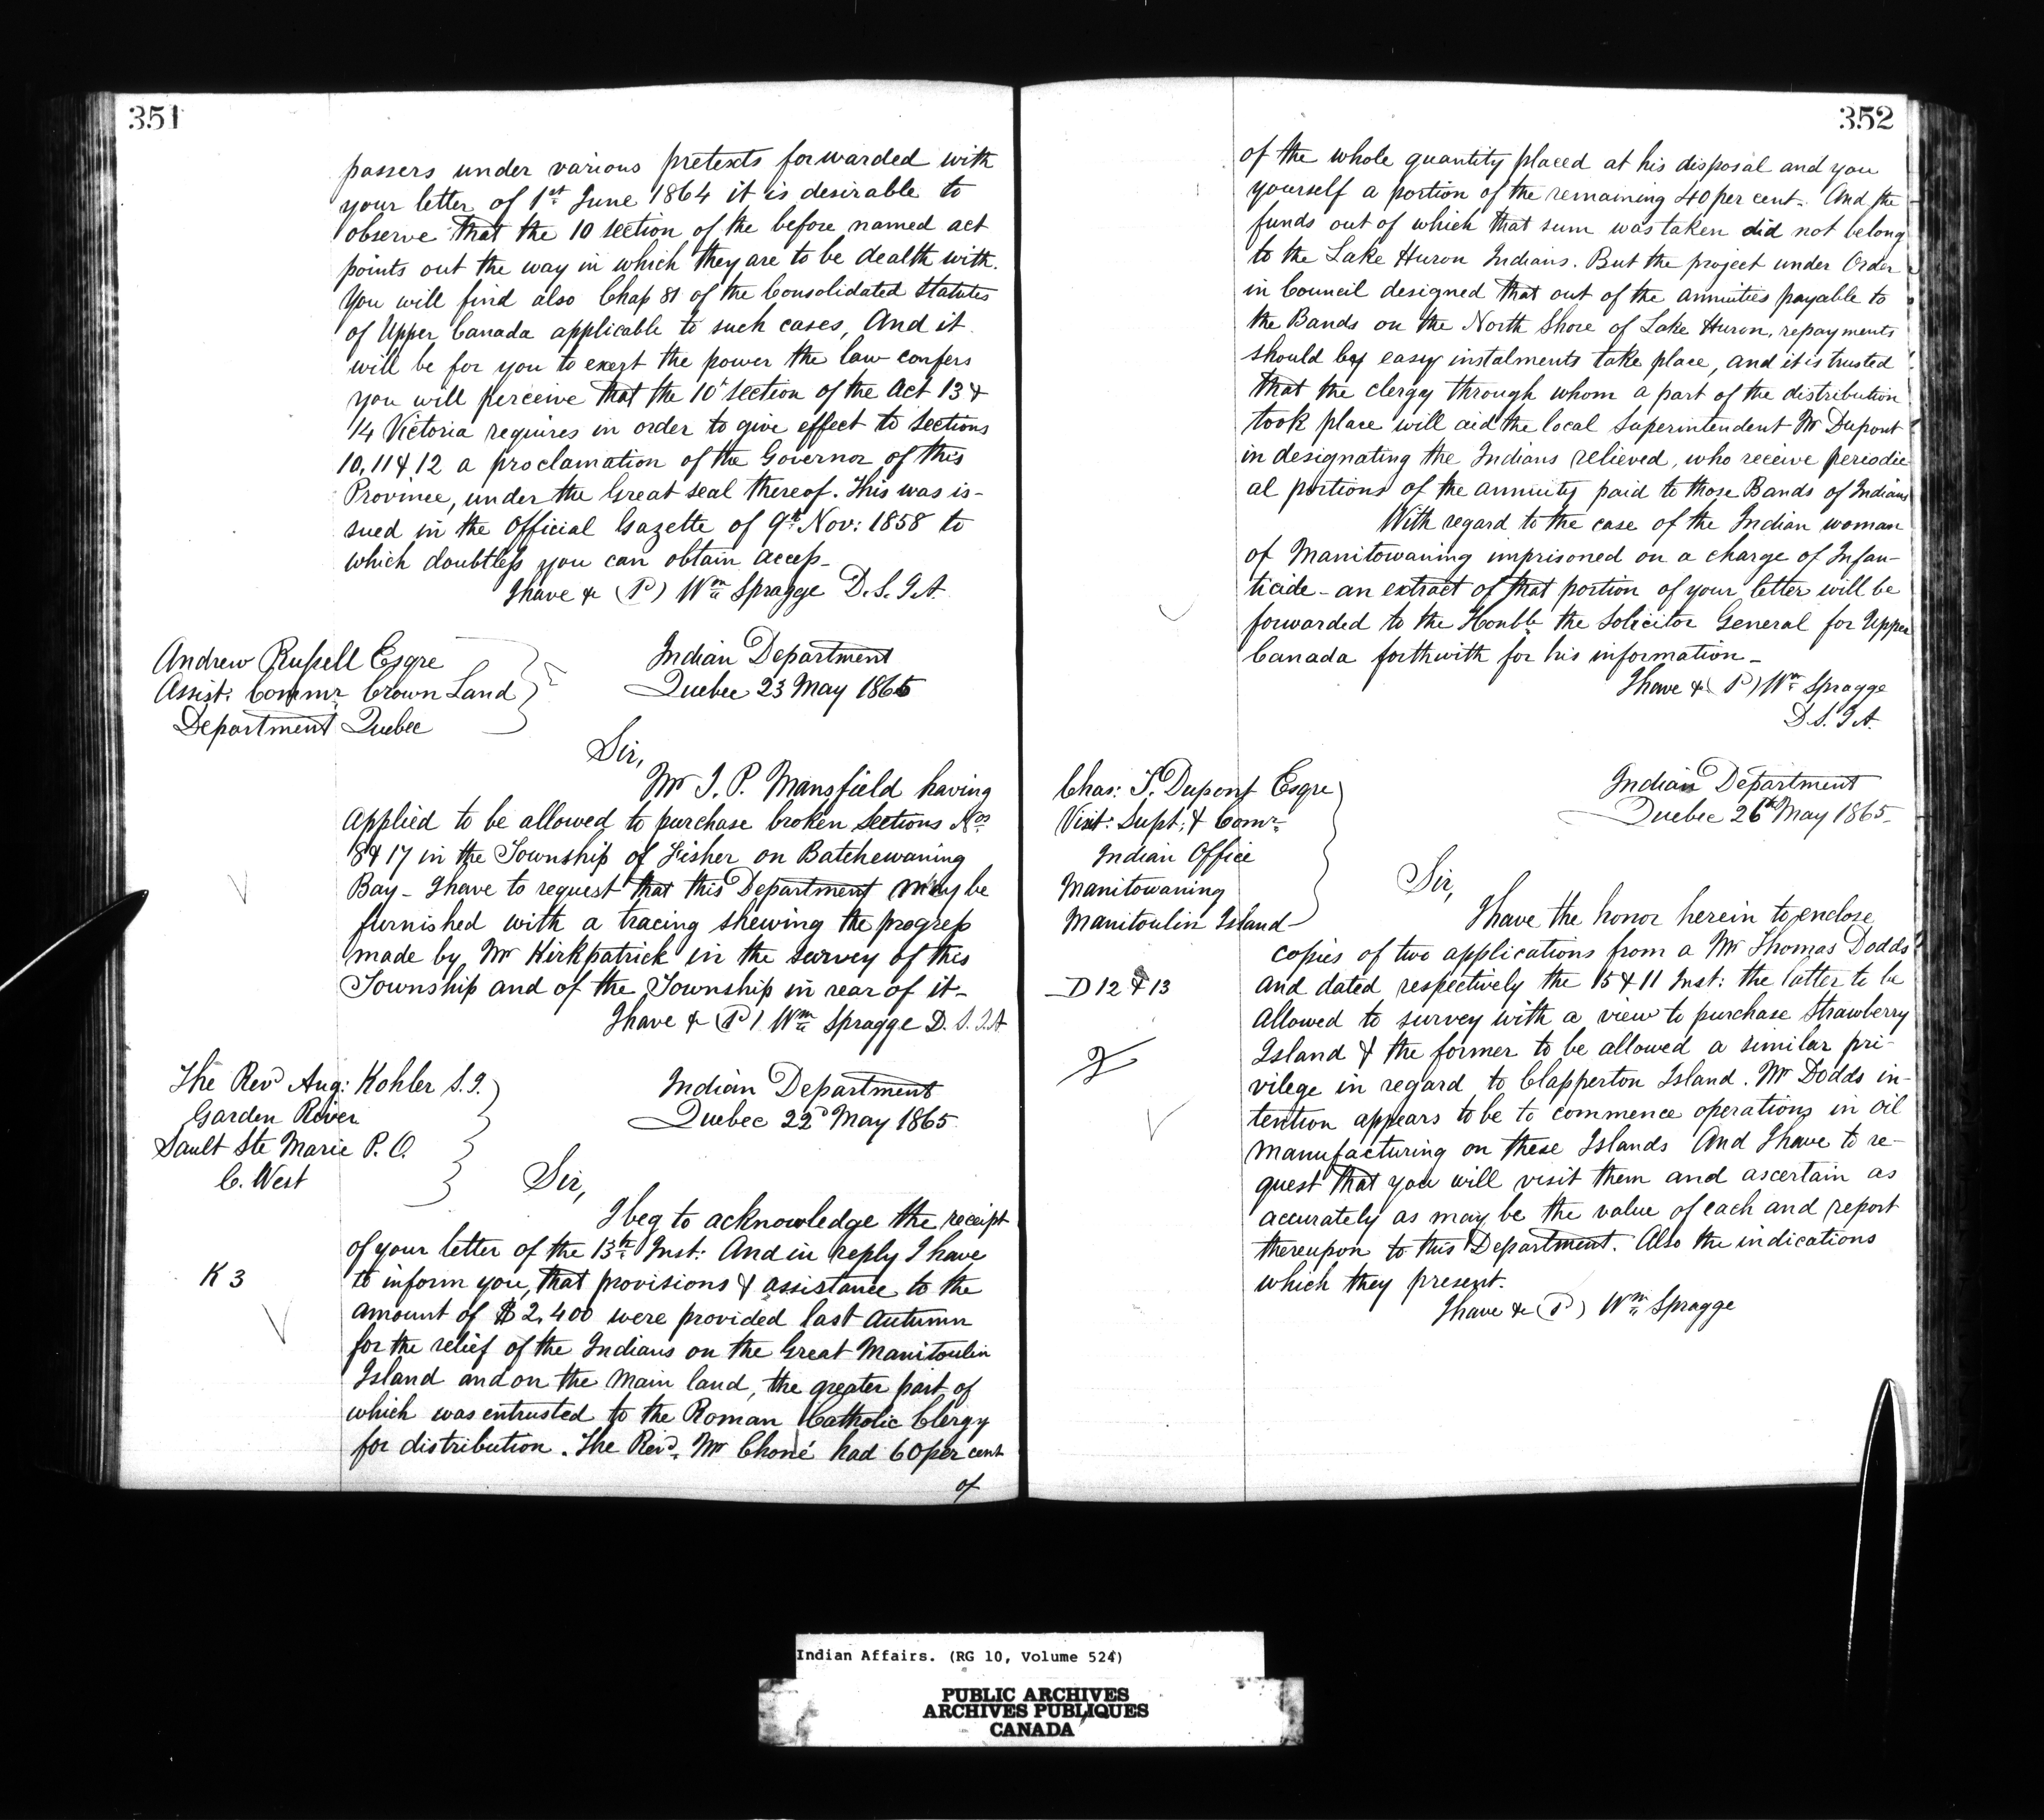 351
passers under various pretexts forwarded with
your letter of 1st June 1864 it is desirable to
observe that the 10 section of the before named act
points out the way in which they are to be dealth with.
You will find also Chap 81 of the Consolidated Statutes
of Upper Canada applicable to such cases, And it
will be for you to exert the power the law confers
you will perceive that the 10th section of the Act 13 &
14 Victoria requires in order to give effect to sections
10, 11 & 12 a proclamation of the Governor of this
Province, under the Great seal thereof. This was is-
sued in the Official Gazette of 9th Nov: 1858 to
which doubtless you can obtain access_
I have & (P) Wm Spragge D.S.I.A.
Andrew Russell Esqre
Assist: Commr Crown Land
Department Quebec
Indian Department
Quebec 23 May 1865
Sir,
Mr I. P. Mansfield having
applied to be allowed to purchase broken sections Nos
8 & 17 in the Township of Fisher on Batchewaning
Bay_ I have to request that this Department may be
furnished with a tracing shewing the progress
made by Mr Kirkpatrick in the survey of this
Township and of the Township in rear of it_
I have & (P) Wm Spragge D.S.I.A
The Revd Aug: Kohler S.J.
Garden River
Sault Ste Marie P.O.
C. West
Indian Department
Quebec 22d May 1865
Sir,
I beg to acknowledge the receipt
of your letter of the 13th Inst: And in reply I have
K 3
to inform you, that provisions & assistance to the
amount of $2,400 were provided last Autumn
for the relief of the Indians on the Great Manitoulin
Island and on the Main land, the greater part of
which was entrusted to the Roman Catholic Clergy
for distribution. The Revd. Mr Choné had 60 per cent
of
352
of the whole quantity placed at his disposal and you
yourself a portion of the remaining 40 per cent. And the
funds out of which that sum was taken did not belong
to the Lake Huron Indians. But the project under Order
in Council designed that out of the annuities payable to
the Bands on the North Shore of Lake Huron, repayments
should by easy instalments take place, and it is trusted
that the clergy through whom a part of the distribution
took place will aid the local Superintendent Mr Dupont
in designating the Indians relieved, who receive periodic
al portions of the annuity paid to those Bands of Indians
With regard to the case of the Indian woman
of Manitowaning imprisoned on a charge of Infan-
ticide - an extract of that portion of your letter will be
forwarded to the Honble the Solicitor General for Upper
Canada forthwith for his information_
I have & (P) Wm Spragge
D.S.I.A.
Chas: T. Dupont Esqre
Visit: Supt: & Comr
Indian Office
Manitowaning
Manitoulin Island
Indian Department
Quebec 26th May 1865_
Sir,
I have the honor herein to enclose
copies of two applications from a Mr Thomas Dodds
D 12 & 13
and dated respectively the 15 & 11 Inst: the latter to be
allowed to survey with a view to purchase Strawberry
Island & the former to be allowed a similar pri-
vilege in regard to Clapperton Island. Mr Dodds in-
tention appears to be to commence operations in oil
manufacturing on these Islands And I have to re-
quest that you will visit them and ascertain as
accurately as may be the value of each and report
thereupon to this Department. Also the indications
which they present.
I have & (P) Wm Spragge
Indian Affairs. (RG 10, Volume 524)
PUBLIC ARCHIVES
ARCHIVES PUBLIQUES
CANADA